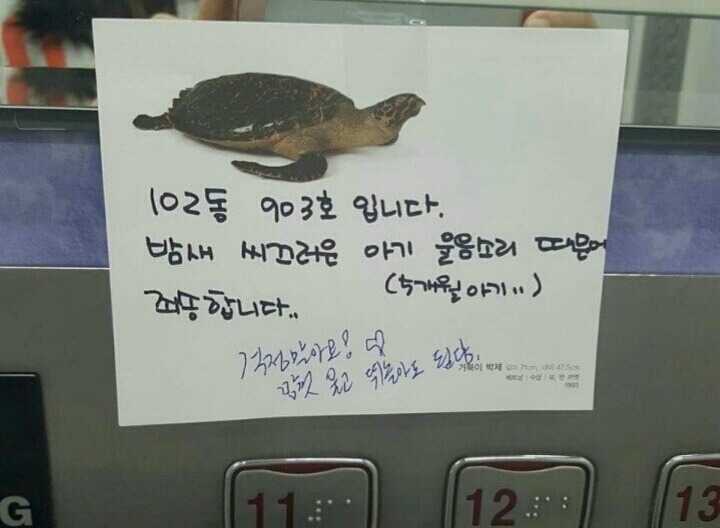 102동 903호 입니다.
밤새 씨끄러운 아기 울음소리 때문에
죄송합니다..
(5개월 아기..)
걱정말아요!
맘껏 울고 뛰놀아도 된답.
거북이 박제
G
11
12
13